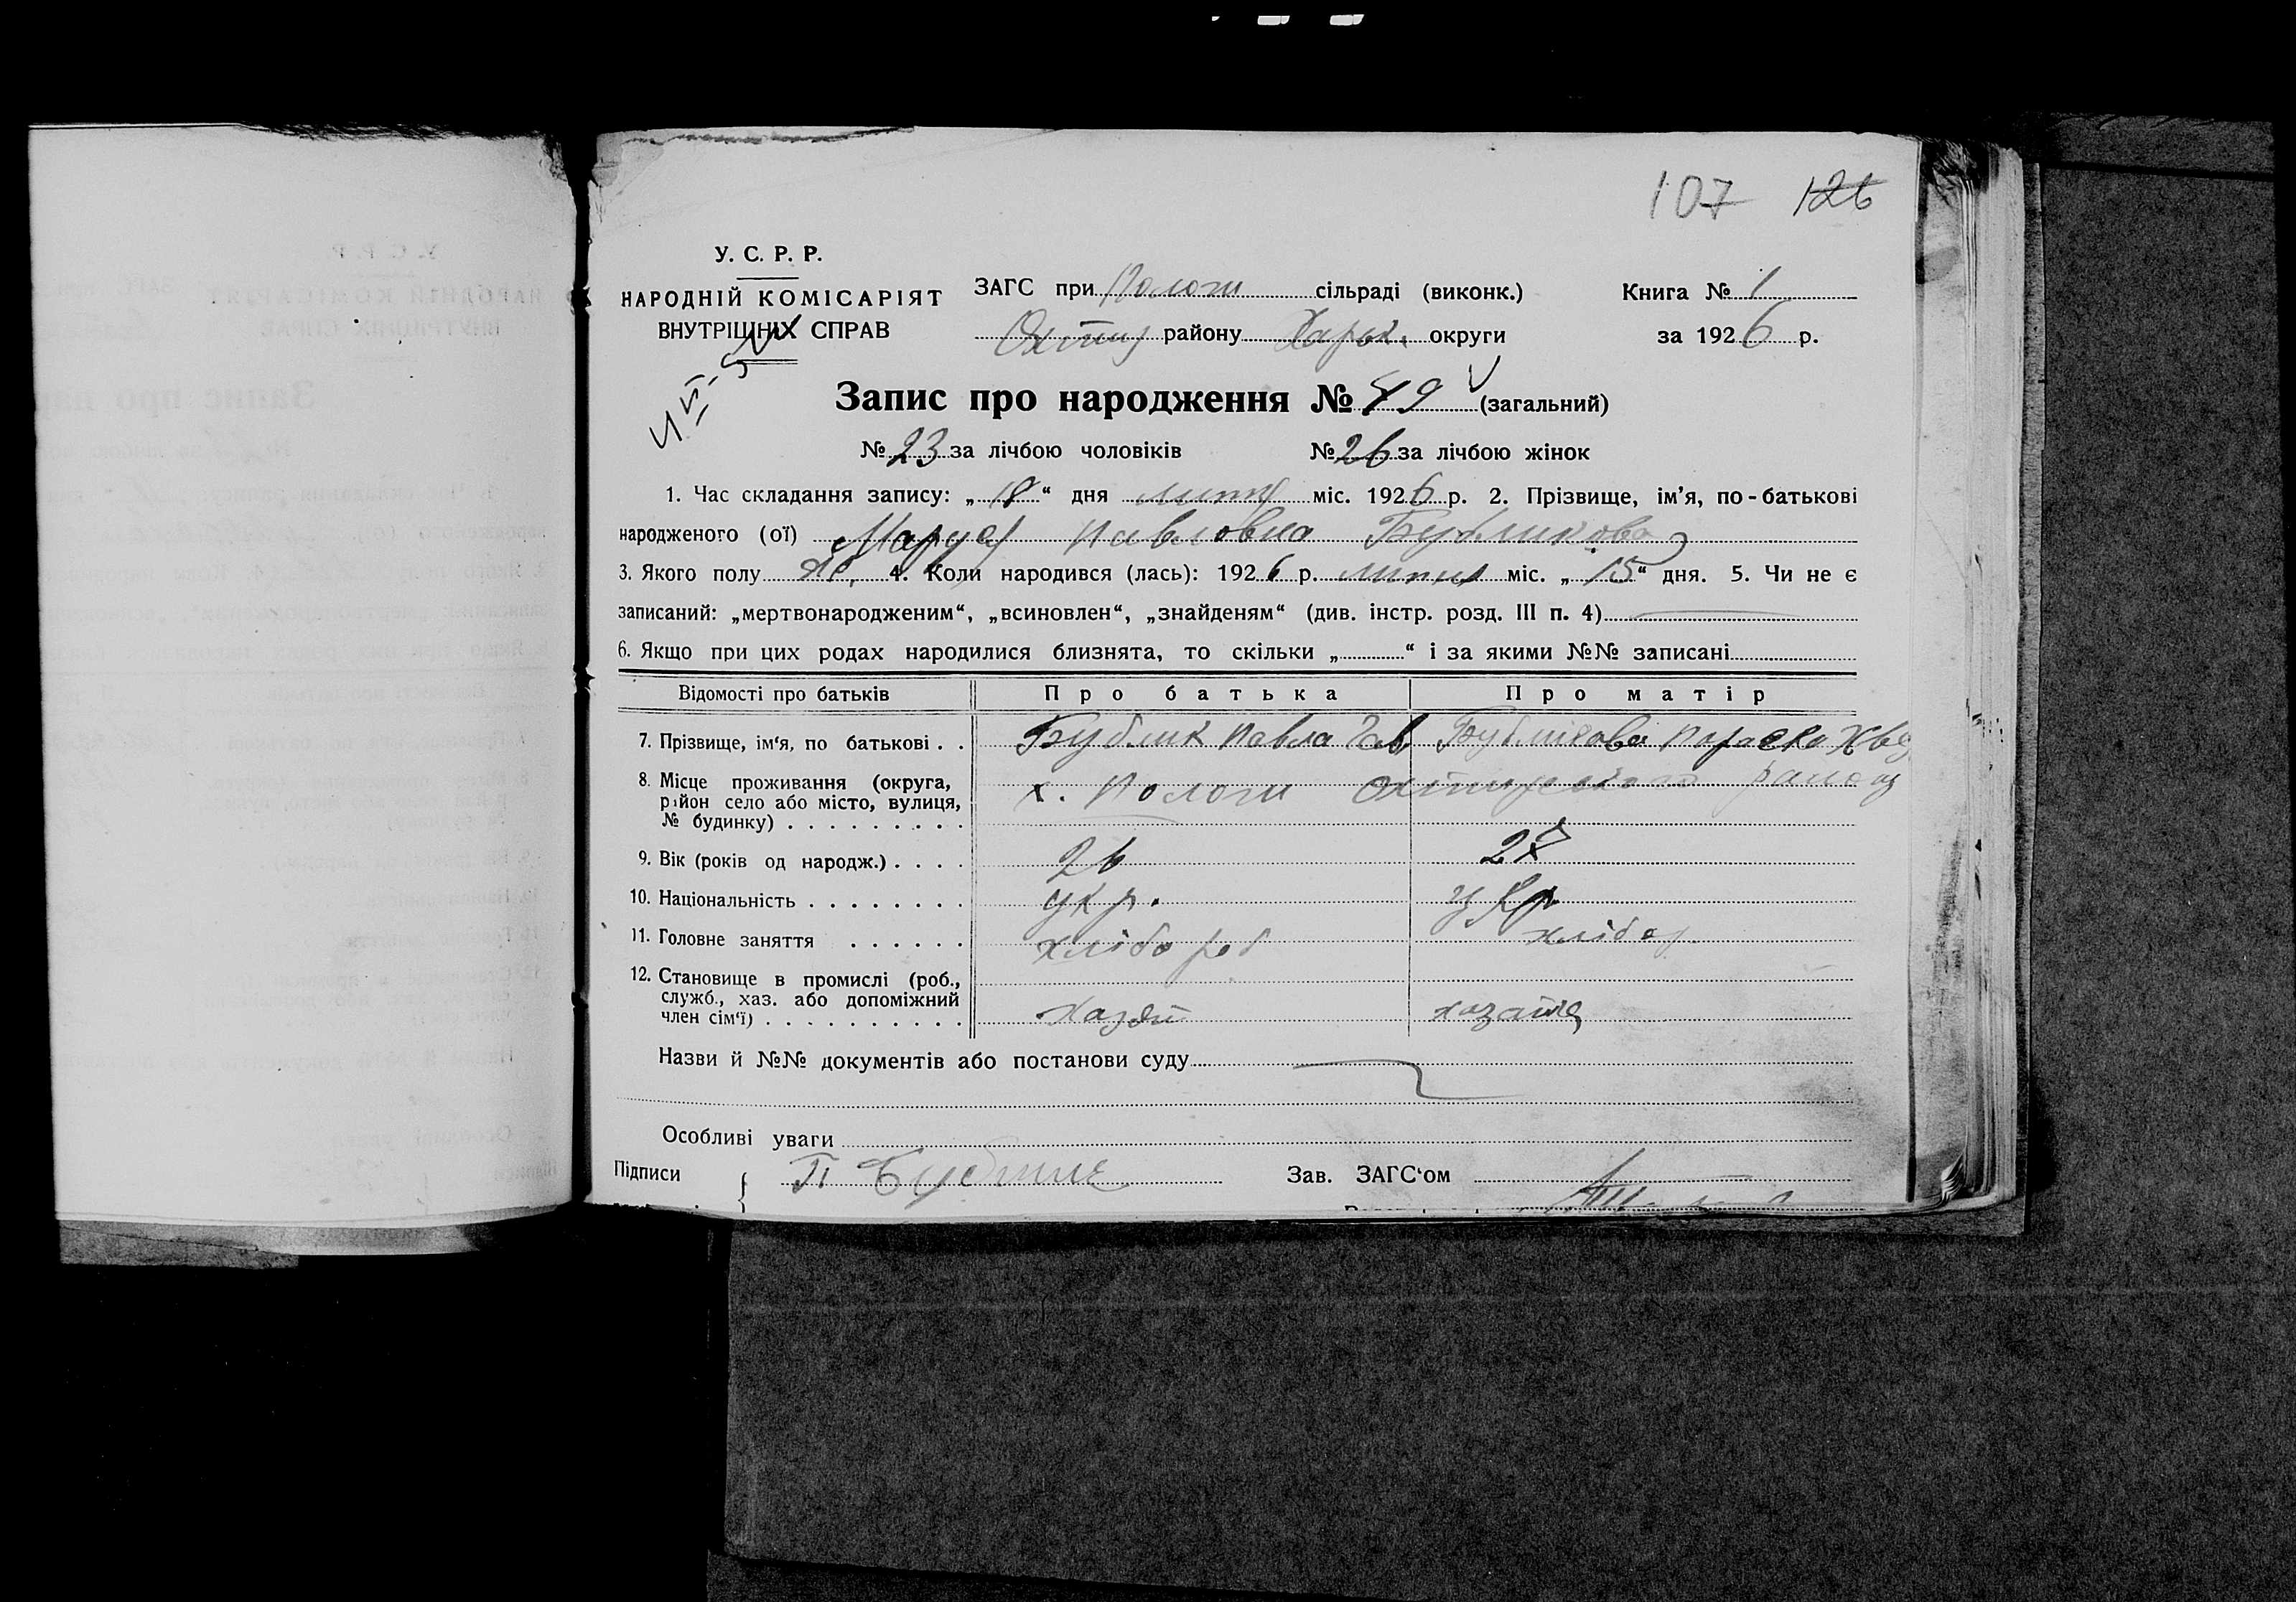 107 126
У. С. Р. Р.
НАРОДНІЙ КОМІСАРІЯТ
ВНУТРІШНІХ СПРАВ
ЗАГС при Пологи сільраді (виконк.)
Охтир району Харьк. округи
Книга № 1
за 1926 р.
Запис про народження № 49 (загальний)
№ 23 за лічбою чоловіків № 26 за лічбою жінок
1. Час складання запису: „ 18 “ дня липня міс. 1926 р. 2. Прізвище, ім’я, по-батькові
народженого (ої) Маруся Павловна Бубликова
3. Якого полу ж. 4. Коли народився (лась): 1926 р. липня міс. „ 15 “ дня. 5. Чи не є
записаний: „мертвонародженим“, „всиновлен“, „знайденям“ (див. інстр. розд. III п. 4)
6. Якщо при цих родах народилися близнята, то скільки „ “ і за якими №№ записані
Відомості про батьків Про батька Про матір
7. Прізвище, ім‘я, по батькові . . Бублик Павла Гав. Бублікова Параска Хвед
8. Місце проживання (округа, х. Пологи Охтирського району
район село або місто, вулиця,
№ будинку) . . . . . . . . .
9. Вік (років од народж.) . . . . 26 28
10. Національність . . . . . . . . укр. укр.
11. Головне заняття . . . . . . хлібороб хлібор
12. Становище в промислі (роб.,
служб., хаз. або допоміжний
член сім‘ї) . . . . . . . . . . Хазяїн хазайка
Назви й №№ документів або постанови суду
Особливі уваги
Підписи П Бублик Зав. ЗАГС‘ом